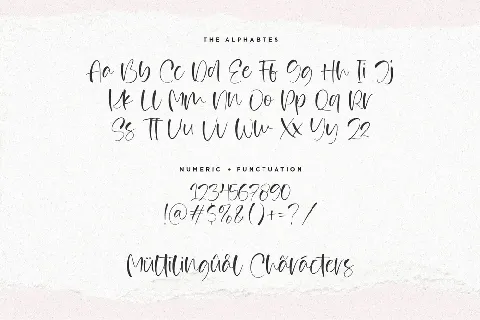 THE ALPHABTES
Aa Bb Cc Dd Ee Ff Gg Hh Ii Jj
Kk Ll Mm Nn Oo Pp Qq Rr
Ss Tt Uu Vv Ww Xx Yy Zz
NUMERIC + PUNCTUATION
1234567890
!@#$%&()+=?/
Mültilingûål Chärácters